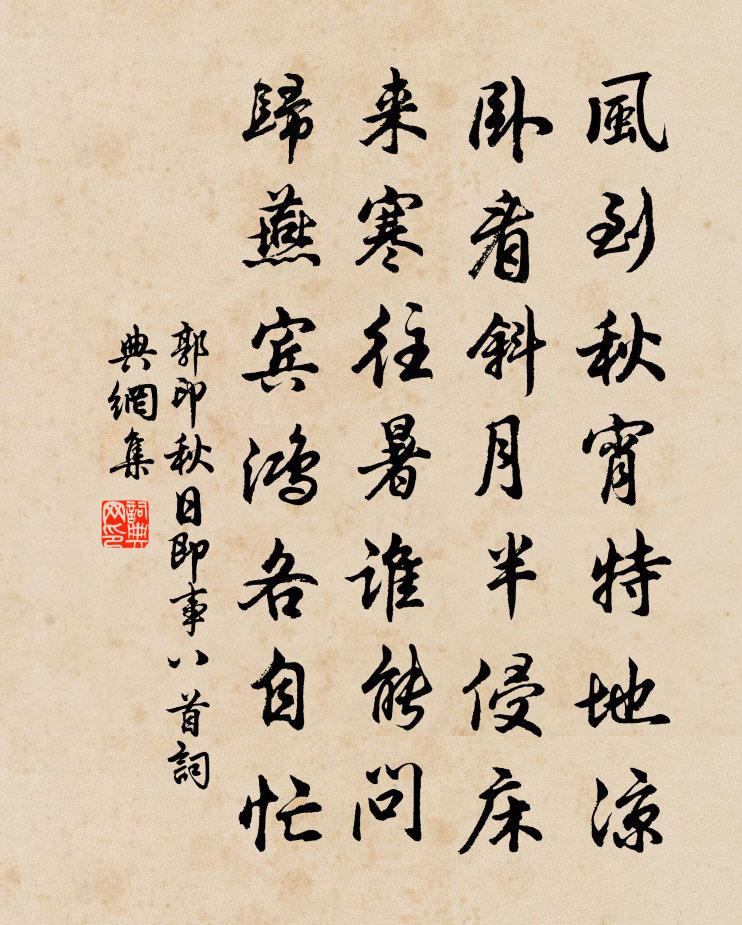 風到秋宵特地涼
卧看斜月半侵床
来寒往暑誰能問
歸燕賓鴻各自忙
郭印秋日即事八首詞
典網集
詞典网印